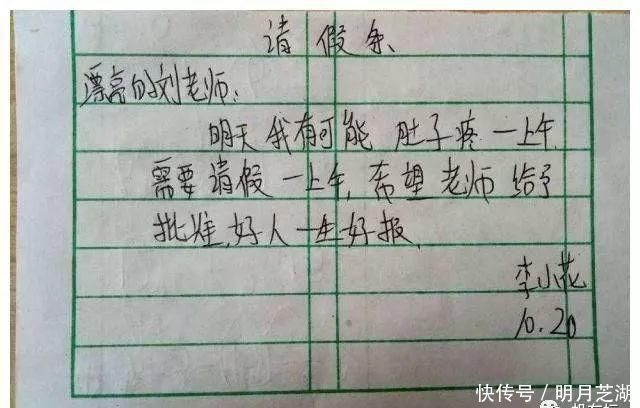 请假条
漂亮的刘老师：
明天我有可能肚子疼一上午
需要请假一上午,希望老师给予
批准,好人一生好报,
李小花
10.20
快传号/明月芝湖